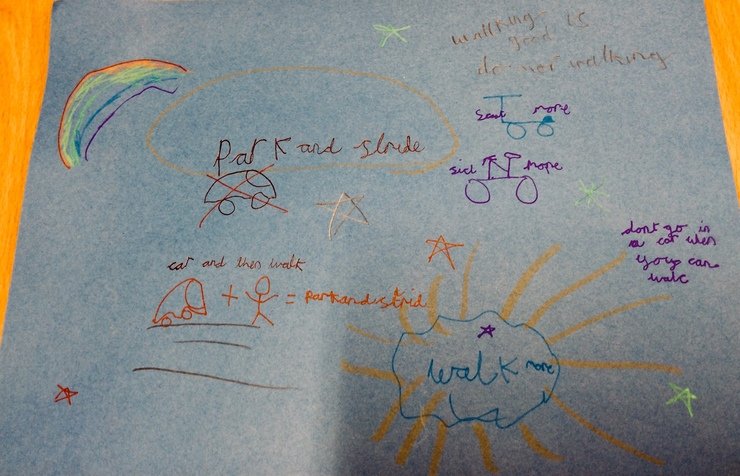 wallking is
good
do mor walking
Scut more
Park and stride
sicl more
dont go in
a car when
you can
walk
car and then walk
+ = parkandstrid
walk more